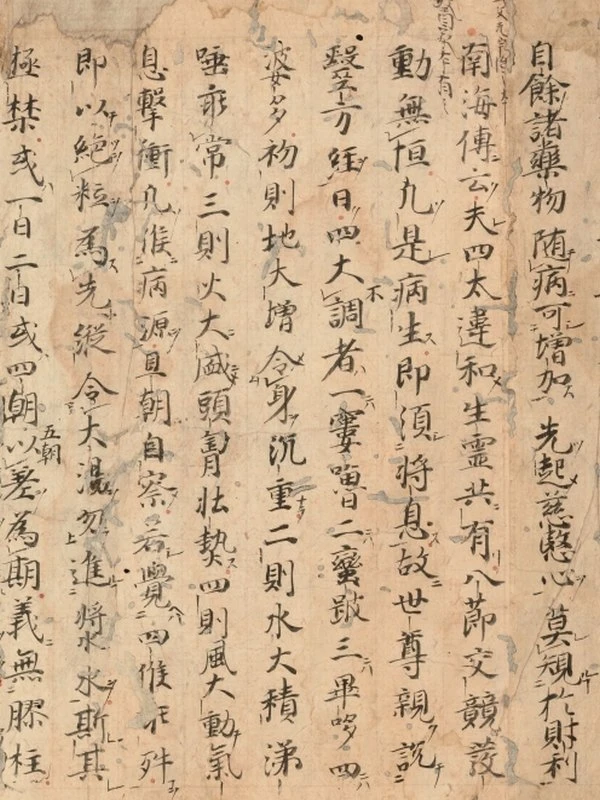 自餘諸藥物随病可增加先起慈愍心莫規於財利
南海傳云夫四太違和生靈共有八節交競發
動無恒凢是病生即須將息故世尊親說
毉方經曰四大不調者一窶嚕二蠻跛三畢哆四
婆多初則地大增令身沉重二則水大積涕
唾乖常三則火大盛頭胷壯熱四則風大動氣
息擊衝凢候病源旦朝自察若覺四候乖舛
即以絕粒為先縱令大渴勿進漿水斯其
極禁或一日二日或四朝五朝以差為期義無膠柱